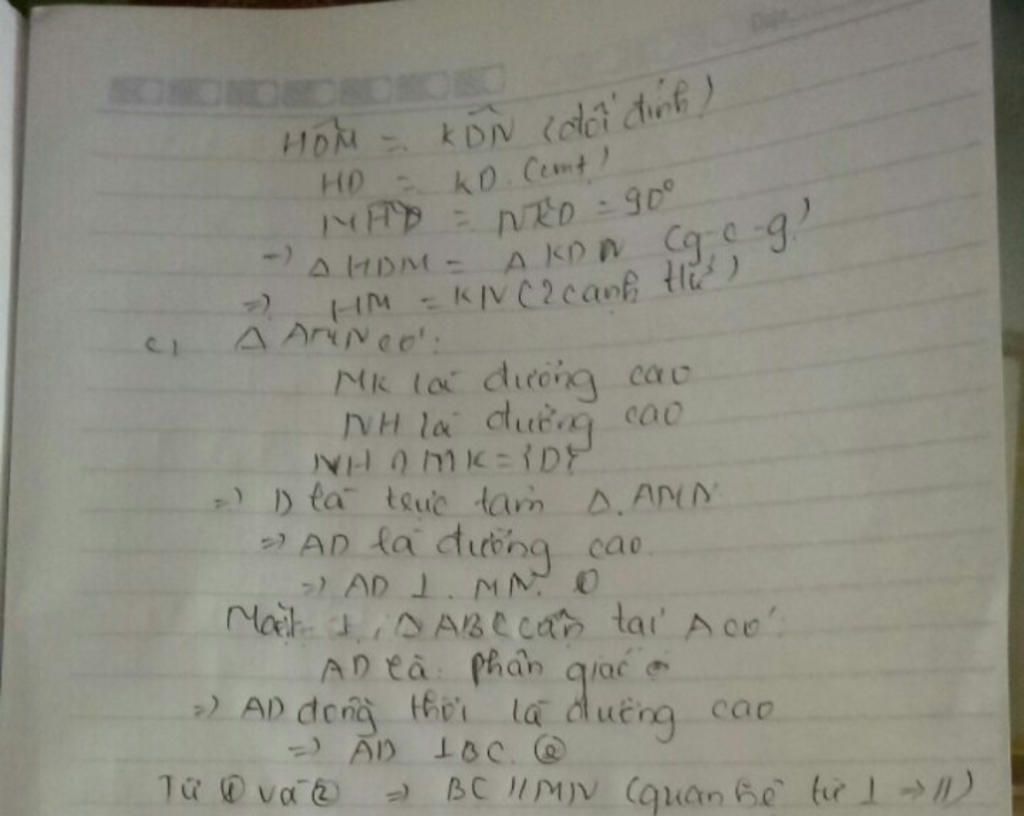 HDM = KDN (đối đỉnh)
HD = KD (cmt)
MHD = NKD = 90°
=> Δ HDM = Δ KDN (g-c-g)
=> HM = KN (2 cạnh tứ)
c, Δ AMN có:
MK là đường cao
NH là đường cao
NH ∩ MK = {D}
=> D là trực tâm Δ. AMN.
=> AD là đường cao.
=> AD ⊥ . MN. ①
Mặt ≠, Δ ABC cân tại A có:
AD là phân giác
=> AD đồng thời là đường cao
=> AD ⊥ BC. ②
Từ ① và ② => BC // MN (quan hệ từ ⊥ -> //)